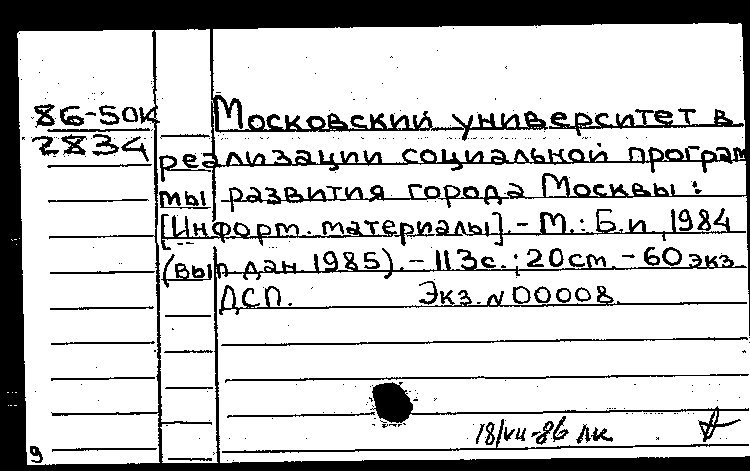 86-50к
2834
Московский университет в
реализации социальной програм
мы развития города Москвы :
[Информ. материалы]. - М.: Б.и, 1984
(вып дан. 1985). - 113с.; 20см. - 60 экз
ДСП. Экз. N 00008.
18/VII-86 лк
9